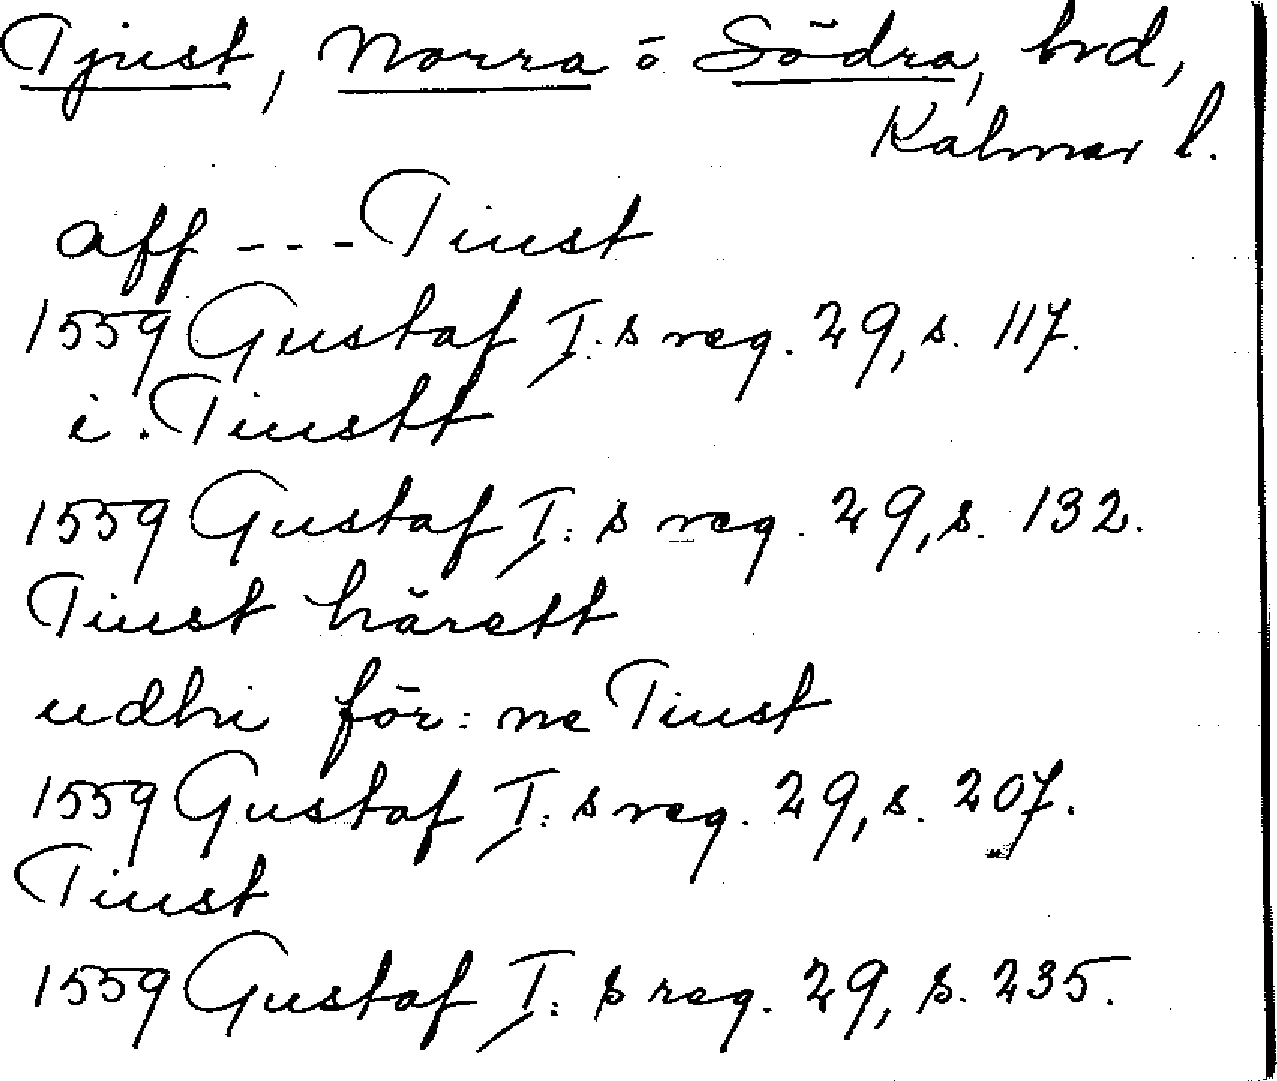 Tjust, Norra o Södra, hd,
Kalmar l.
aff --- Tiust
1559 Gustaf I:s reg. 29, s. 117.
i Tiustt
1559 Gustaf I:s reg. 29, s. 132.
Tiust härett
udhi för:ne Tiust
1559 Gustaf I:s reg. 29, s. 207.
Tiust
1559 Gustaf I:s reg. 29, s. 235.